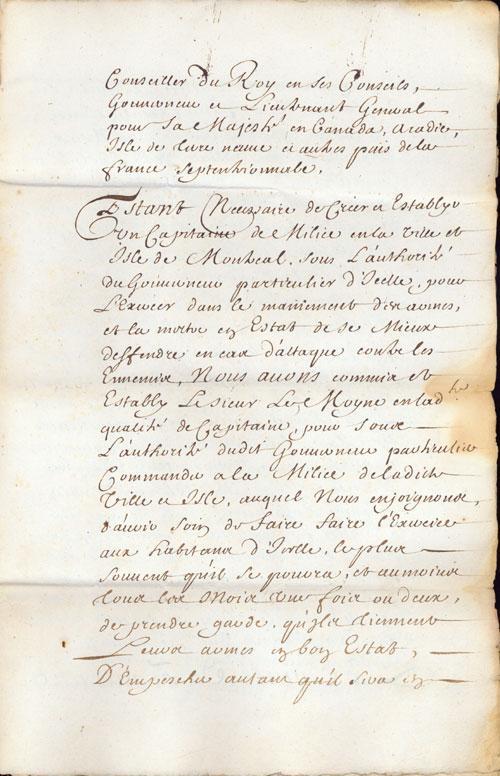 Conseiller du Roy en ses Conseils,
Gouverneur et Lieutenant General
pour Sa Majesté en Canada, Acadie,
Isle de terre neuve et autres païs de la
france septentrionnale.
Estant Necessaire de Créer et Establyr
Un Capitaine de Milice en la Ville et
Isle de Montreal, sous L'authorité
du Gouverneur particulier d'Icelle, pour
L'Exercer dans le maniement des armes,
et la mettre en Estat de se Mieux
deffendre en cas d'attaque contre les
Ennemis, Nous avons commis et
Estably Le Sieur Le Moyne en lad.te
qualité de Capitaine, pour sous
L'authorité dudit Gouverneur particulier
Commander a la Milice de ladite
Ville et Isle, auquel Nous enjoignons,
d'avoir soin de faire faire l'Exercice
aux habitans d'Icelle, le plus
souvent qu'il se pourra, et au moins
tous les Mois une fois ou deux,
de prendre garde qu'ils tiennent
Leurs armes en bon Estat,
D'Empescher autant qu'il sera en